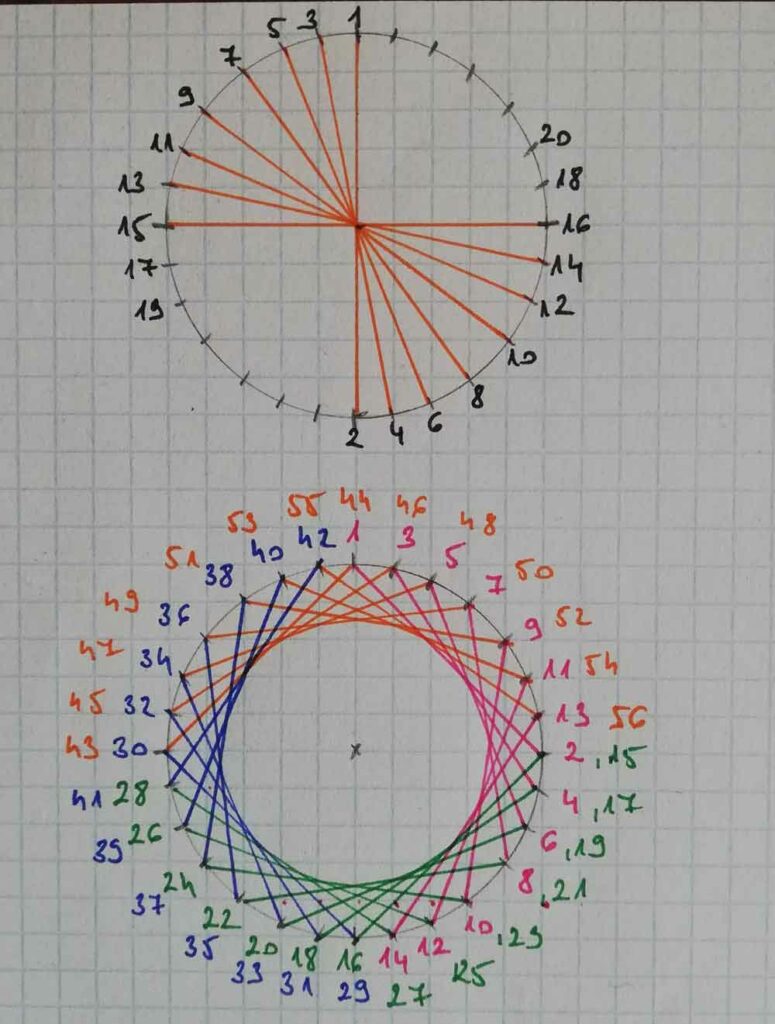 5 3 1
7
9
20
11
18
13
15 16
17 14
19 12
10
8
2 4 6
55 44 46
53 48
42 1 3
51 40 5
38 7 50
49 36 9 52
47 34 11 54
45 32 13 56
43 30 2 , 15
41 28 4 , 17
39 26 6 , 19
37 24 8 , 21
22 10 , 23
35 20 18 16 14 12 25
33 31 29 27